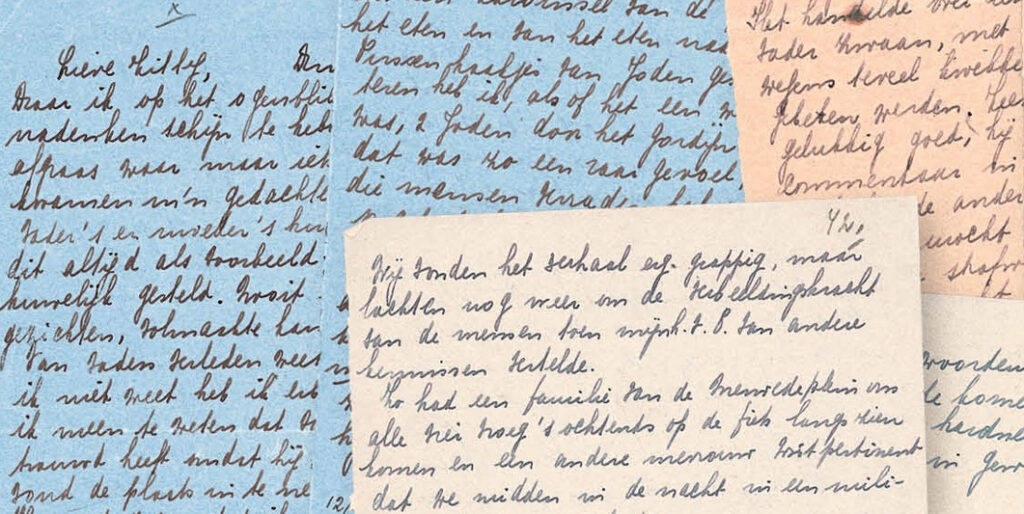 x
Lieve Kitty,
Daar ik op het ogenblik
nadenken schijn te heb
afgraas waar maar iet
kwamen m'n gedachte
Vader's en moeder's hu
dit altijd als voorbeeld
huwelijk gesteld. Nooit
gezichten, volmaakte har
Van Vaders verleden weet
ik niet weet heb ik er
ik meen te weten dat V
trouwd heeft omdat hij
vond de plaats in te ne
van de
het eten en van het eten naa
Pinsen kaatjes van Joden ge
teren heb ik, als of het een w
was, 2 Joden door het gordijn
dat was zo een raar gevoel,
die mensen
12,
Het handelde over
Vader Zwaan, met
wegens teveel kwebbe
gebeten werden.
gelukkig goed, hij
commentaar in
de ander
mocht
strafw
42.
Wij vonden het verhaal erg grappig, maar
lachten nog meer om de verbeeldingskracht
van de mensen toen mijnh. v. P. van andere
kennissen vertelde.
Zo had een familie van de Merwedeplein ons
alle vier vroeg 's ochtents op de fiets langs zien
komen en een andere mevrouw wist pertinent
dat we midden in de nacht in een mili-
woorden
te kome
hardne
in gew